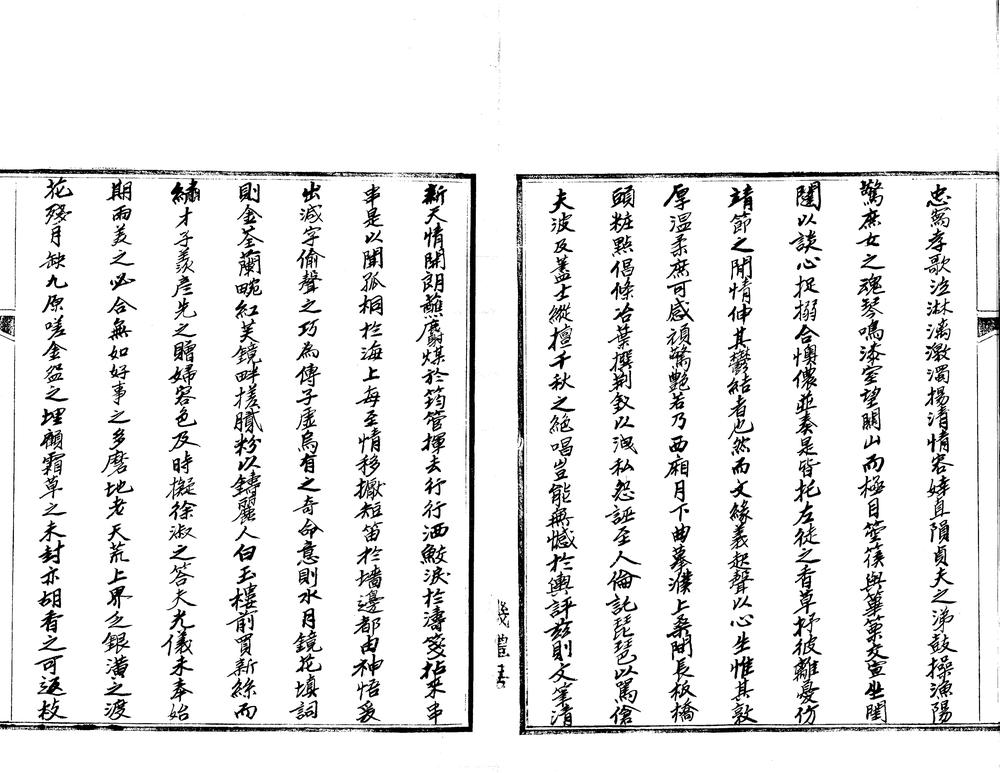 忠寫孝歌泣淋漓激濁揚清情客婞直隕貞夫之涕鼓操漁陽
驚庶女之魂琴鳴漆室望關山而極目箜篌與篳篥交宣坐閨
闥以談心捉搦合懊儂並奏是皆托左徒之香草抒彼離憂仿
靖節之閒情伸其鬱結者也然而文緣義起聲以心生惟其敦
厚溫柔庶可感頑驚艷若乃西廂月下曲摹濮上桑間長板橋
頭粧點倡條冶葉撰荊釵以洩私怨誣至人倫託琵琶以罵傖
夫波及藎士縱擅千秋之絕唱豈能無憾於輿評茲則文筆清
新天情開朗蘸麝煤於筠管揮去行行洒鮫淚於濤箋拈來串
串是以聞孤桐於海上每至情移擫短笛於墻邊都由神悟爰
出減字偷聲之巧為傳子虛烏有之奇命意則水月鏡花填詞
則金荃蘭畹紅芙鏡畔搓膩粉以鑄麗人白玉樓前買新絲而
繡才子羨彥先之贈婦容色及時擬徐淑之答夫光儀未奉始
期兩美之必合無如好事之多磨地老天荒上界乏銀潢之渡
花殘月缺九原嗟金盌之埋願霜草之未封亦胡香之可返枚